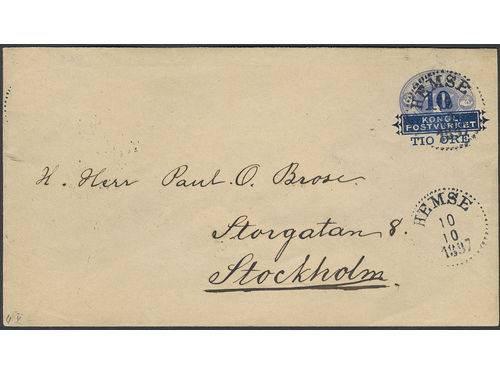 HEMSE
10
KONGL.
POSTVERKET
TIO ÖRE
H. Herr Paul. O. Brose.
HEMSE
10
10
1897
Storgatan 8.
Stockholm.